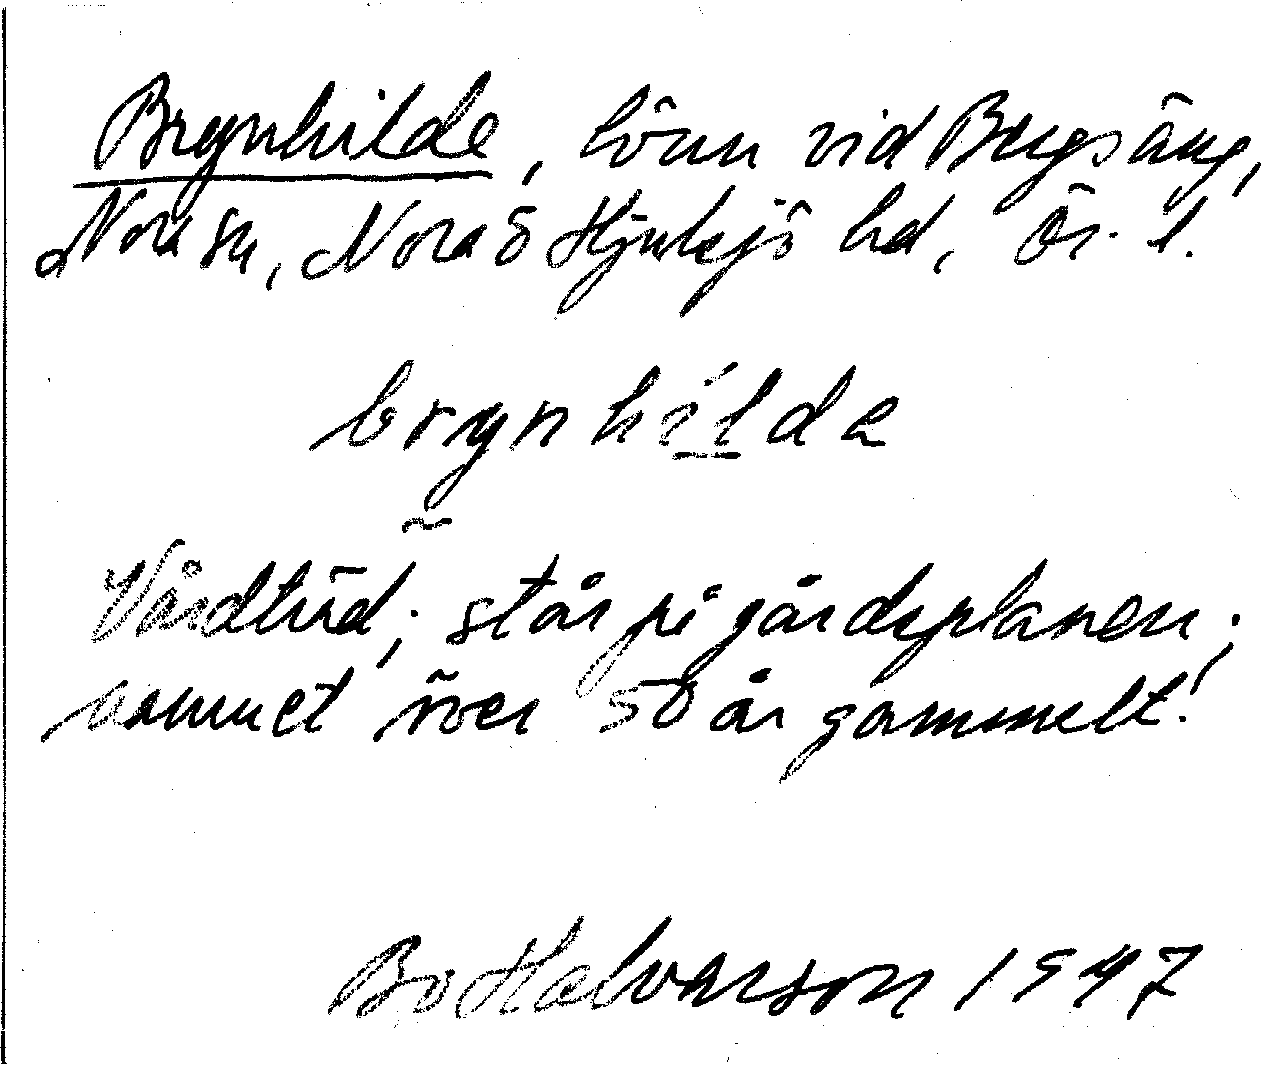 Brynhilde, lönn vid Bergsäng,
Nora sn, Nora o Hjulsjö hd, Ör. l.
brynhílda
Vårdträd; står på gårdsplanen;
namnet över 50 år gammelt!
Bo Halvarson 1947